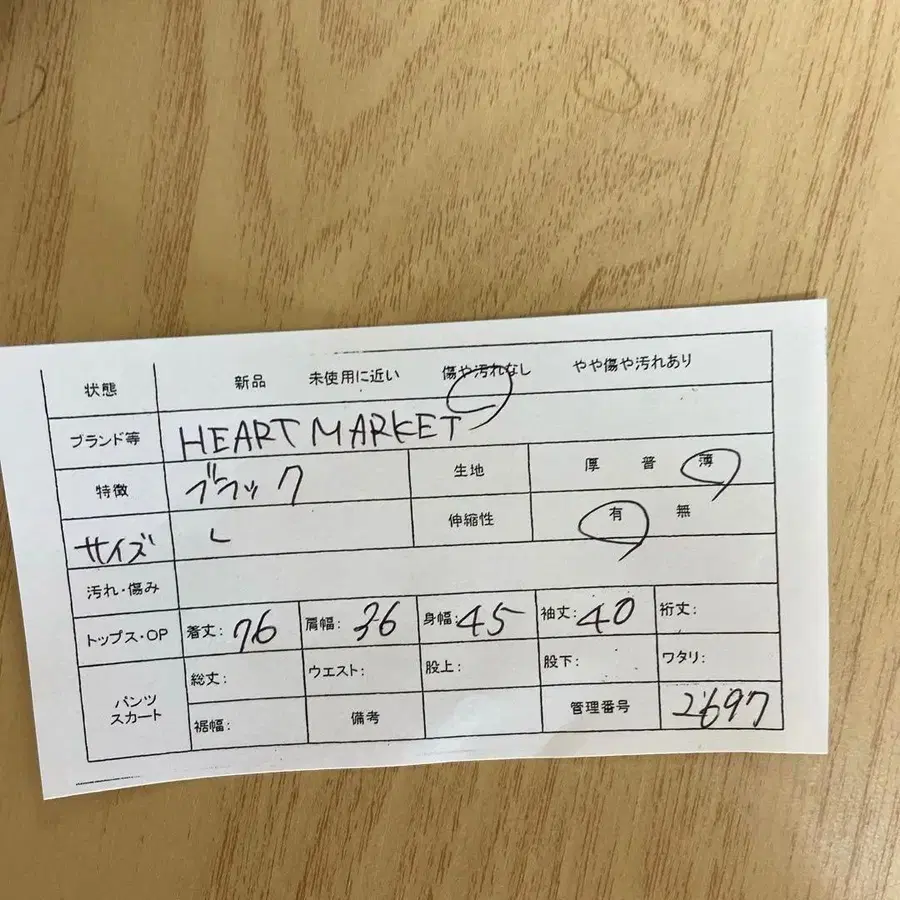 状態 新品 未使用に近い 傷や汚れなし やや傷や汚れあり
ブランド等 HEART MARKET
特徴 ブラック 生地 厚 普 薄
サイズ L 伸縮性 有 無
汚れ・傷み
トップス・OP 着丈: 76 肩幅: 36 身幅: 45 袖丈: 40 裄丈:
パンツ スカート 総丈: ウエスト: 股上: 股下: ワタリ:
裾幅: 備考 管理番号 2697